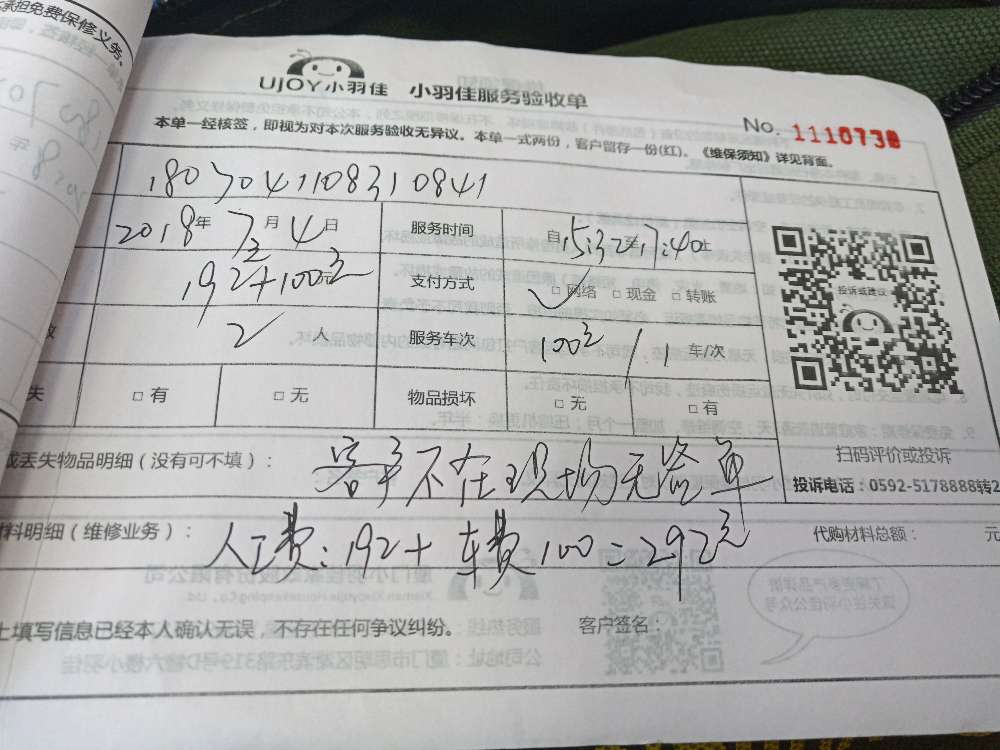 承担免费保修义务、
UJOY小羽佳 小羽佳服务验收单
No. 1110738
本单一经核签，即视为对本次服务验收无异议。本单一式两份，客户留存一份(红)。《维保须知》详见背面。
2018年 7月 4日 服务时间 自15:32至17:40止
192+100元 支付方式 ✓□网络 □现金 □转账
投诉或建议
2 人 服务车次 100元 / 1 车/次
失 □有 □无 物品损坏 □无 □有
扫码评价或投诉
或丢失物品明细（没有可不填）： 客户不在现场无签单
投诉电话：0592-5178888转2
料明细（维修业务）： 人工费：192+ 车费100=292元 代购材料总额： 元
上填写信息已经本人确认无误，不存在任何争议纠纷。 客户签名：